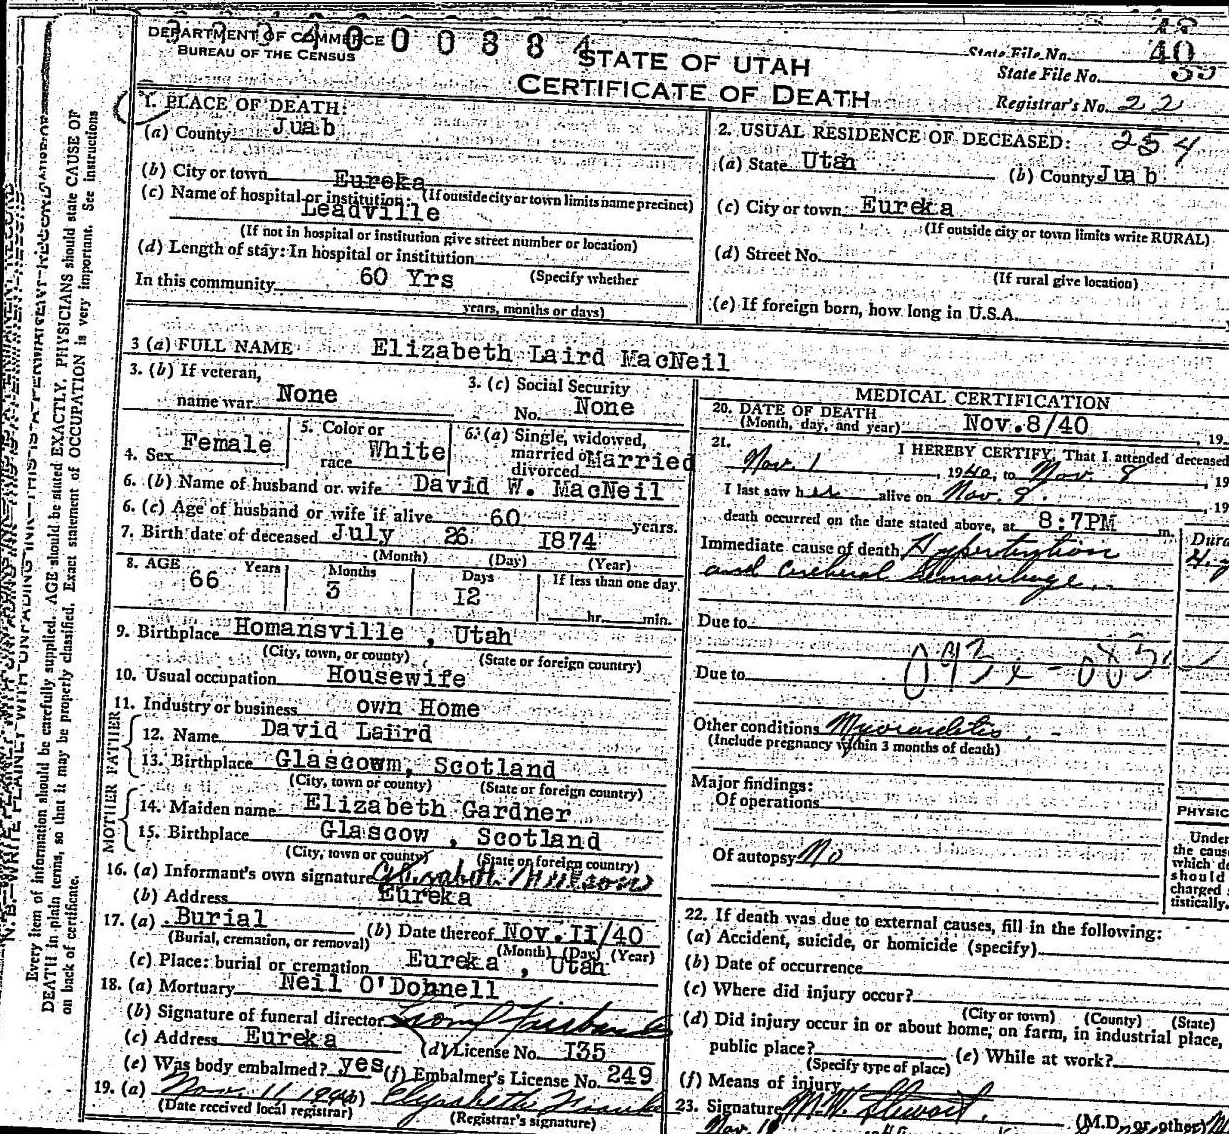 DEPARTMENT OF COMMERCE
BUREAU OF THE CENSUS
0 0 0 8 8 4
STATE OF UTAH
CERTIFICATE OF DEATH
State File No. 40
State File No.
Registrar's No. 22
1. PLACE OF DEATH:
(a) County Juab
(b) City or town Eureka
(If outside city or town limits name precinct)
(c) Name of hospital or institution:
Leadville
(If not in hospital or institution give street number or location)
(d) Length of stay: In hospital or institution
(Specify whether
In this community 60 Yrs
years, months or days)
2. USUAL RESIDENCE OF DECEASED: 254
(a) State Utah (b) County Juab
(c) City or town Eureka
(If outside city or town limits write RURAL)
(d) Street No.
(If rural give location)
(e) If foreign born, how long in U.S.A.
3 (a) FULL NAME Elizabeth Laird MacNeil
3. (b) If veteran,
name war None
3. (c) Social Security
No. None
4. Sex Female
5. Color or
race White
6. (a) Single, widowed,
married or
divorced Married
6. (b) Name of husband or wife David W. MacNeil
6. (c) Age of husband or wife if alive 60 years.
7. Birth date of deceased July 26 1874
(Month) (Day) (Year)
8. AGE Years Months Days If less than one day
66 3 12 hr. min.
9. Birthplace Homansville , Utah
(City, town, or county) (State or foreign country)
10. Usual occupation Housewife
11. Industry or business own Home
FATHER
12. Name David Laird
13. Birthplace Glascowm, Scotland
(City, town or county) (State or foreign country)
MOTHER
14. Maiden name Elizabeth Gardner
15. Birthplace Glascow , Scotland
(City, town or county) (State or foreign country)
16. (a) Informant's own signature Elizabeth
(b) Address Eureka
17. (a) Burial (b) Date thereof Nov. II/40
(Burial, cremation, or removal) (Month) (Day) (Year)
(c) Place: burial or cremation Eureka , Utah
18. (a) Mortuary Neil O'Dohnell
(b) Signature of funeral director
(c) Address Eureka (d) License No. I35
(e) Was body embalmed? yes (f) Embalmer's License No. 249
19. (a) Nov. 11 1940 Elizabeth
(Date received local registrar) (Registrar's signature)
MEDICAL CERTIFICATION
20. DATE OF DEATH
(Month, day, and year) Nov.8/40 , 19
21. I HEREBY CERTIFY, That I attended deceased
Nov. 1 , 1940, to Nov. 8 , 19
I last saw her alive on Nov. 8. , 19
death occurred on the date stated above, at 8:7PM m.
Immediate cause of death Hypertention
and Cerebral hemorrhage
Due to
Due to
Other conditions Myocarditis
(Include pregnancy within 3 months of death)
Major findings:
Of operations
Of autopsy No
PHYSIC
Under
the caus
which de
should
charged
tistically.
22. If death was due to external causes, fill in the following:
(a) Accident, suicide, or homicide (specify)
(b) Date of occurrence
(c) Where did injury occur?
(City or town) (County) (State)
(d) Did injury occur in or about home, on farm, in industrial place,
public place? (e) While at work?
(Specify type of place)
(f) Means of injury
23. Signature M.W. Stewart. (M.D. or other)
Every item of information should be carefully supplied. AGE should be stated EXACTLY. PHYSICIANS should state CAUSE OF
DEATH in plain terms, so that it may be properly classified. Exact statement of OCCUPATION is very important. See instructions
on back of certificate.